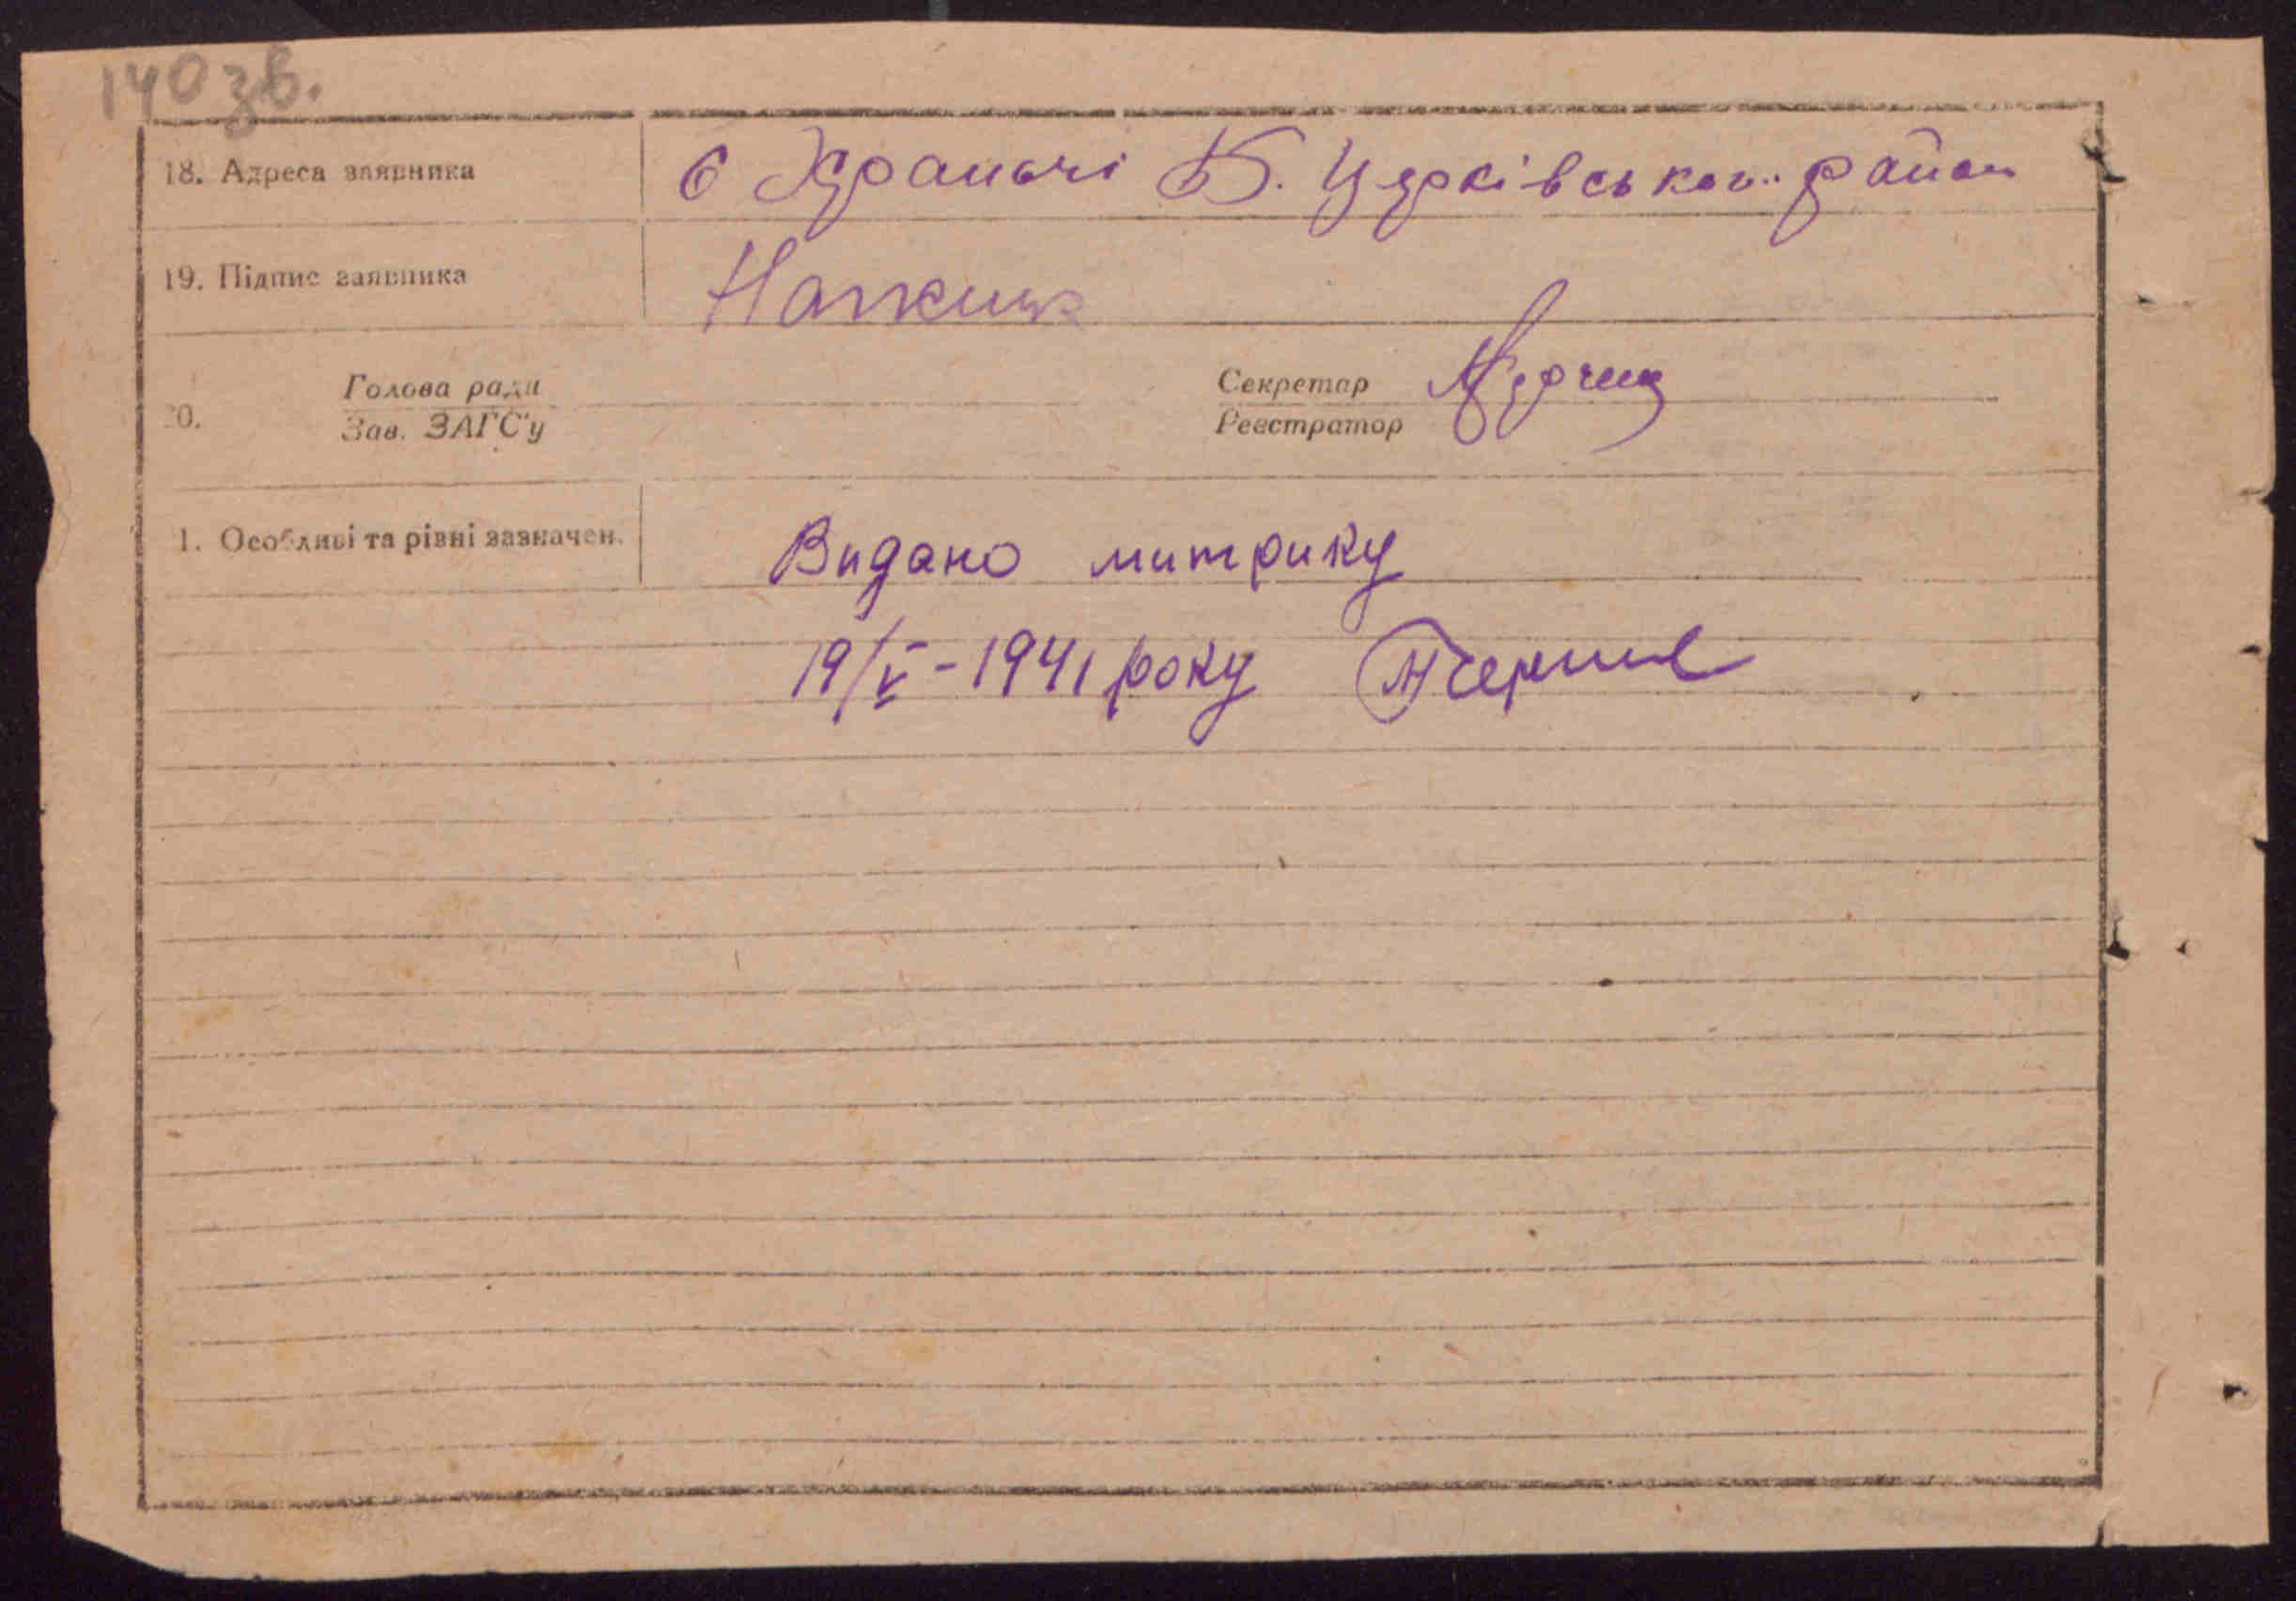 140 зв.
18. Адреса заявника с Храпачі Б. Церківського району
19. Підпис заявника
20. Голова ради Секретар
Зав. ЗАГС'у Реєстратор
1. Особливі та рівні зазначен. Видано митрику
19/V - 1941 року